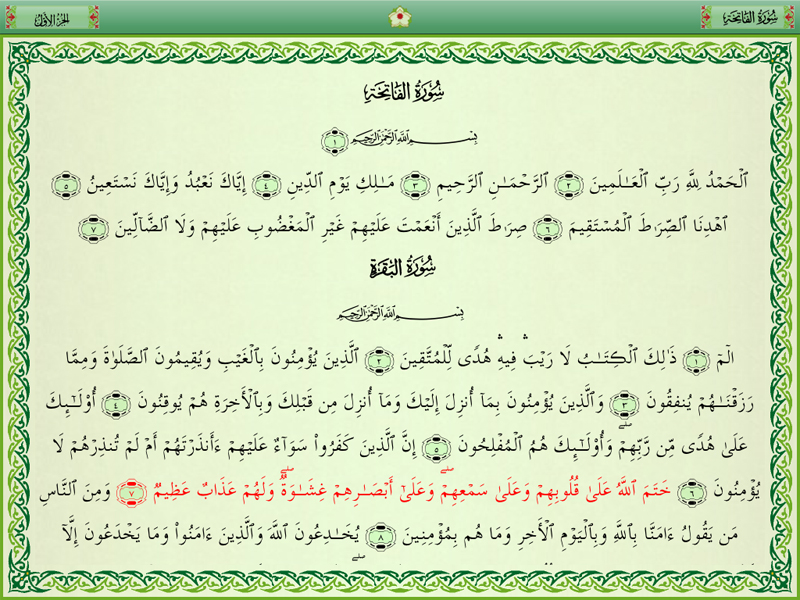 سُورَةُ الفَاتِحَةِ
الجُزْءُ الأَوَّلُ
سُورَةُ الفَاتِحَةِ
بِسْمِ ٱللَّهِ ٱلرَّحْمَٰنِ ٱلرَّحِيمِ ١
ٱلْحَمْدُ لِلَّهِ رَبِّ ٱلْعَـٰلَمِينَ ٢ ٱلرَّحْمَـٰنِ ٱلرَّحِيمِ ٣ مَـٰلِكِ يَوْمِ ٱلدِّينِ ٤ إِيَّاكَ نَعْبُدُ وَإِيَّاكَ نَسْتَعِينُ ٥
ٱهْدِنَا ٱلصِّرَٰطَ ٱلْمُسْتَقِيمَ ٦ صِرَٰطَ ٱلَّذِينَ أَنْعَمْتَ عَلَيْهِمْ غَيْرِ ٱلْمَغْضُوبِ عَلَيْهِمْ وَلَا ٱلضَّآلِّينَ ٧
سُورَةُ البَقَرَةِ
بِسْمِ ٱللَّهِ ٱلرَّحْمَٰنِ ٱلرَّحِيمِ
الٓمٓ ١ ذَٰلِكَ ٱلْكِتَـٰبُ لَا رَيْبَ ۛ فِيهِ ۛ هُدًى لِّلْمُتَّقِينَ ٢ ٱلَّذِينَ يُؤْمِنُونَ بِٱلْغَيْبِ وَيُقِيمُونَ ٱلصَّلَوٰةَ وَمِمَّا
رَزَقْنَـٰهُمْ يُنفِقُونَ ٣ وَٱلَّذِينَ يُؤْمِنُونَ بِمَآ أُنزِلَ إِلَيْكَ وَمَآ أُنزِلَ مِن قَبْلِكَ وَبِٱلْـَٔاخِرَةِ هُمْ يُوقِنُونَ ٤ أُو۟لَـٰٓئِكَ
عَلَىٰ هُدًى مِّن رَّبِّهِمْ ۖ وَأُو۟لَـٰٓئِكَ هُمُ ٱلْمُفْلِحُونَ ٥ إِنَّ ٱلَّذِينَ كَفَرُوا۟ سَوَآءٌ عَلَيْهِمْ ءَأَنذَرْتَهُمْ أَمْ لَمْ تُنذِرْهُمْ لَا
يُؤْمِنُونَ ٦ خَتَمَ ٱللَّهُ عَلَىٰ قُلُوبِهِمْ وَعَلَىٰ سَمْعِهِمْ ۖ وَعَلَىٰٓ أَبْصَـٰرِهِمْ غِشَـٰوَةٌ ۖ وَلَهُمْ عَذَابٌ عَظِيمٌ ٧ وَمِنَ ٱلنَّاسِ
مَن يَقُولُ ءَامَنَّا بِٱللَّهِ وَبِٱلْيَوْمِ ٱلْـَٔاخِرِ وَمَا هُم بِمُؤْمِنِينَ ٨ يُخَـٰدِعُونَ ٱللَّهَ وَٱلَّذِينَ ءَامَنُوا۟ وَمَا يَخْدَعُونَ إِلَّآ